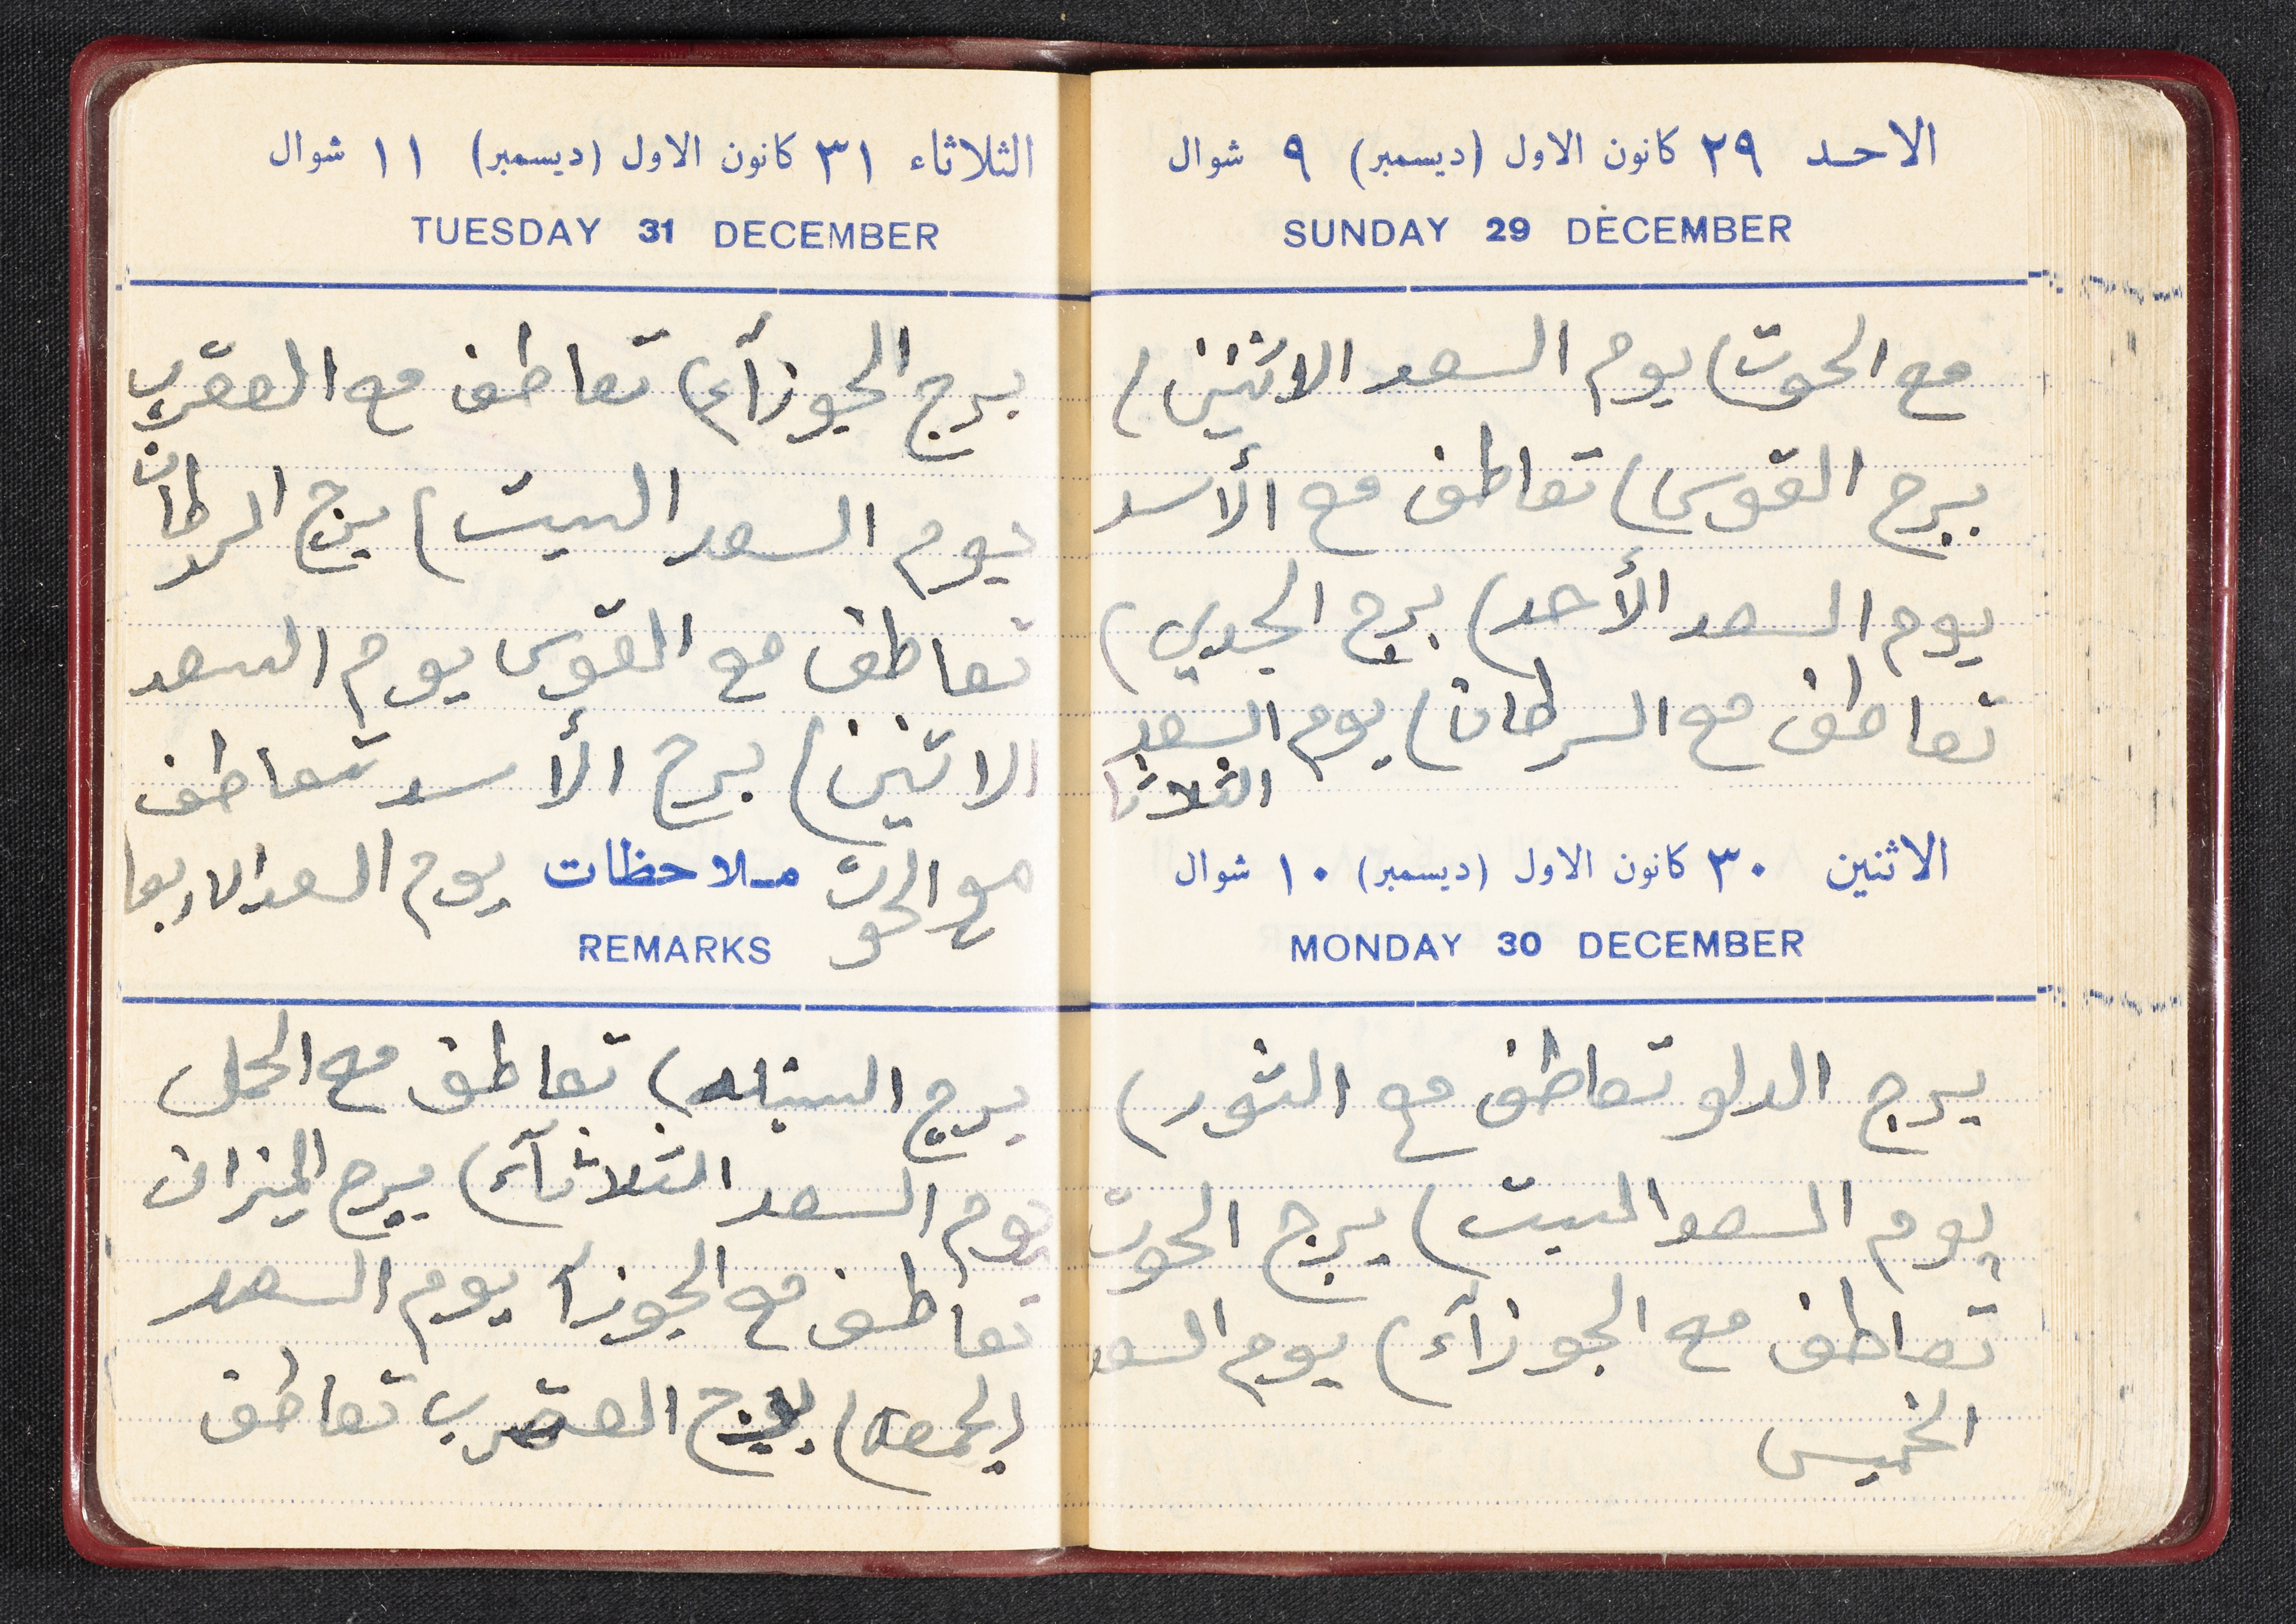 الاحد ٢٩ كانون الاول (ديسمبر) ٩ شوال
SUNDAY 29 DECEMBER
مع الحوت) يوم السعد الاثنين)
برج القوس) تعاطف مع الأسد
يوم السعد الأحد) برج الجدي)
تعاطف مع السرطان) يوم السعد
الثلاثا
الاثنين ٣٠ كانون الاول (ديسمبر) ١٠ شوال
MONDAY 30 DECEMBER
برج الدلو تعاطف مع الثور)
يوم السعد السبت) برج الحوت
تعاطف مع الجوزآء) يوم السعد
الخميس
الثلاثاء ٣١ كانون الاول (ديسمبر) ١١ شوال
TUESDAY 31 DECEMBER
برج الجوزآء) تعاطف مع العقرب
يوم السعد السبت) برج السرطان
تعاطف مع القوس يوم السعد
الاثنين) برج الأسد تعاطف
مع الحوت ملاحظات يوم السعد الاربعا
REMARKS
برج السنبله) تعاطف مع الحمل
يوم السعد الثلاثآء) برج الميزان
تعاطف مع الجوزآ يوم السعد
الجمعه) برج العقرب تعاطف